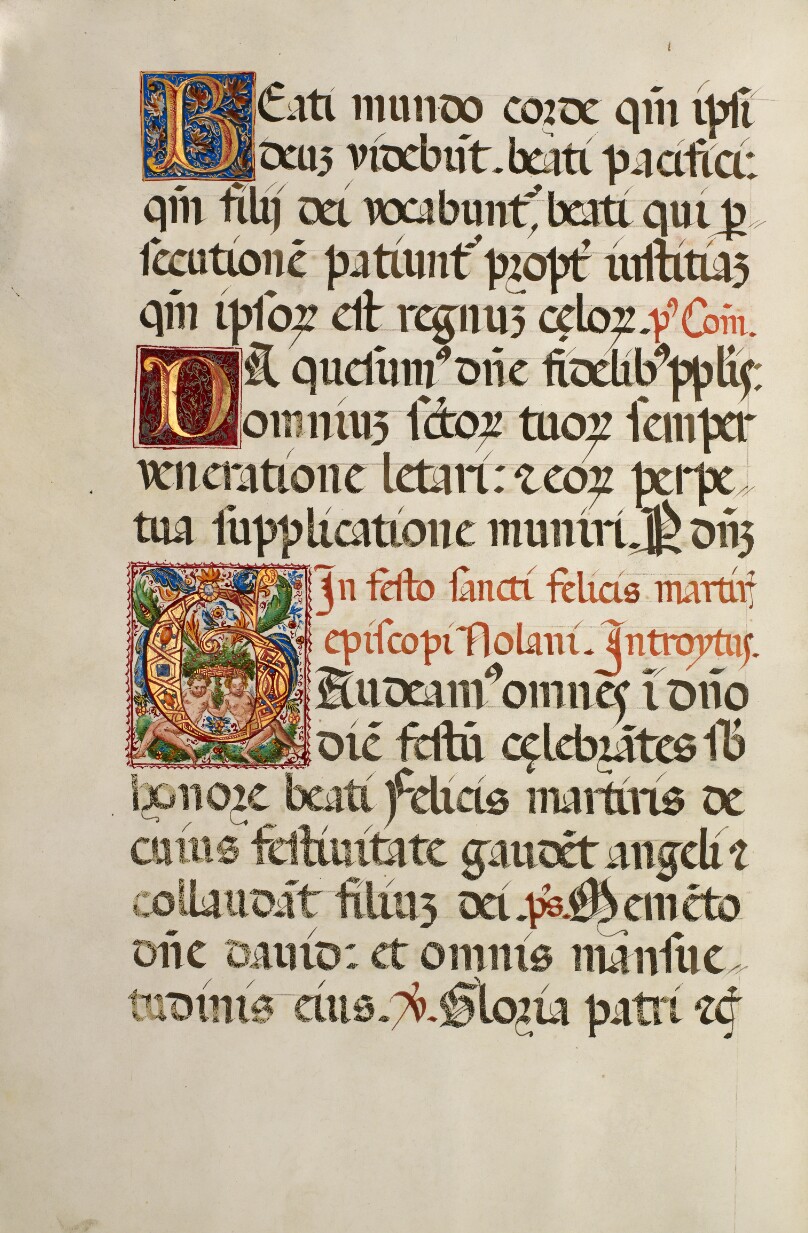 BEati mundo corde qm̄ ipsi
deuʒ videbūt. beati pacifici:
qm̄ filij dei vocabunt᷑, beati qui ꝑ
secutionē patiunt᷑ propt̄ iustitiaʒ
qm̄ ipsoꝝ est regnuʒ cęloꝝ. pꝰ Com̄.
DA quesumꝰ dn̄e fidelibꝰ ppl̄is:
omniuʒ sc̄toꝝ tuoꝝ semper
veneratione letari: ⁊ eoꝝ perpe
tua supplicatione muniri. P dn̄ʒ
In festo sancti felicis martir̄
episcopi Nolani. Introytus.
GAudeamꝰ omnes ī dn̄o
diē festū cęlebrātes sb̄
honore beati Felicis martiris de
cuius festiuitate gaudēt angeli ⁊
collaudāt filiuʒ dei. ps̄. Memēto
dn̄e dauid: et omnis mansue
tudinis eius. ℣. Gloria patri ⁊c̄